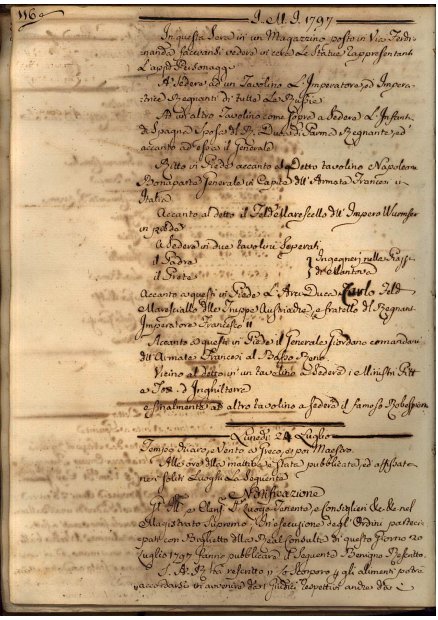 116
I. M. I. 1797
In questa Sera in un Magazzino posto in Via Ferdi-
nanda facevansi vedere in cera le Statue Rappresentanti
L'appiè Personaggi
A Sedere ad un Tavolino L'Imperatore, ed Impera-
trice Regnanti di tutte le Russie
Ad un altro tavolino come sopra a Sedere L'Infanta
di Spagna Sposa del P. Duca di Parma Regnante, ed
accanto ad essa il Generale
Ritto in Piede accanto al Detto tavolino Napoleon
Bonaparte Generale in Capite dell'Armata Francese in
Italia
Accanto al detto il Feld Marescallo dell'Impero Wurmser
in piede
A Sedere in due tavolini Seperati
il Padre
il Prete
Ingegneri nella Piazza
di Mantova
Accanto a questi in Piede L'Arci Duca Carlo Feld
Maresciallo delle Truppe Austriache, e fratello del Regnante
Imperatore Francesco II
Accanto a questi in Piede il Generale Giordano comandante
dell'Armate Francesi al Basso Reno.
Vicino al detto in un tavolino a Sedere i Ministri Pitt
e Fox d'Inghilterra
e finalmente ad altro tavolino a Sedere il famoso Robespier
Lunedì 24 Luglio
Tempo chiaro, e Vento a Greco, e poi Maestro.
Alle ore della mattina è stata pubblicata, ed affissata
nei soliti Luoghi La Seguente
Notificazione
Gl' Ill. e Clariss. Luogo Tenente, e Consiglieri &c. &c. nel
Magistrato Supremo, in esecuzione degl'Ordini partecipati
con Biglietto della Real Consulta di questo Giorno 20
Luglio 1797 fanno pubblicare il Seguente Benigno Rescritto.
S. A. R. ha rescritto, Lo Stonporo gli alimenti potrà
accordarsi in avvenire dai Giudici respettivi anche da